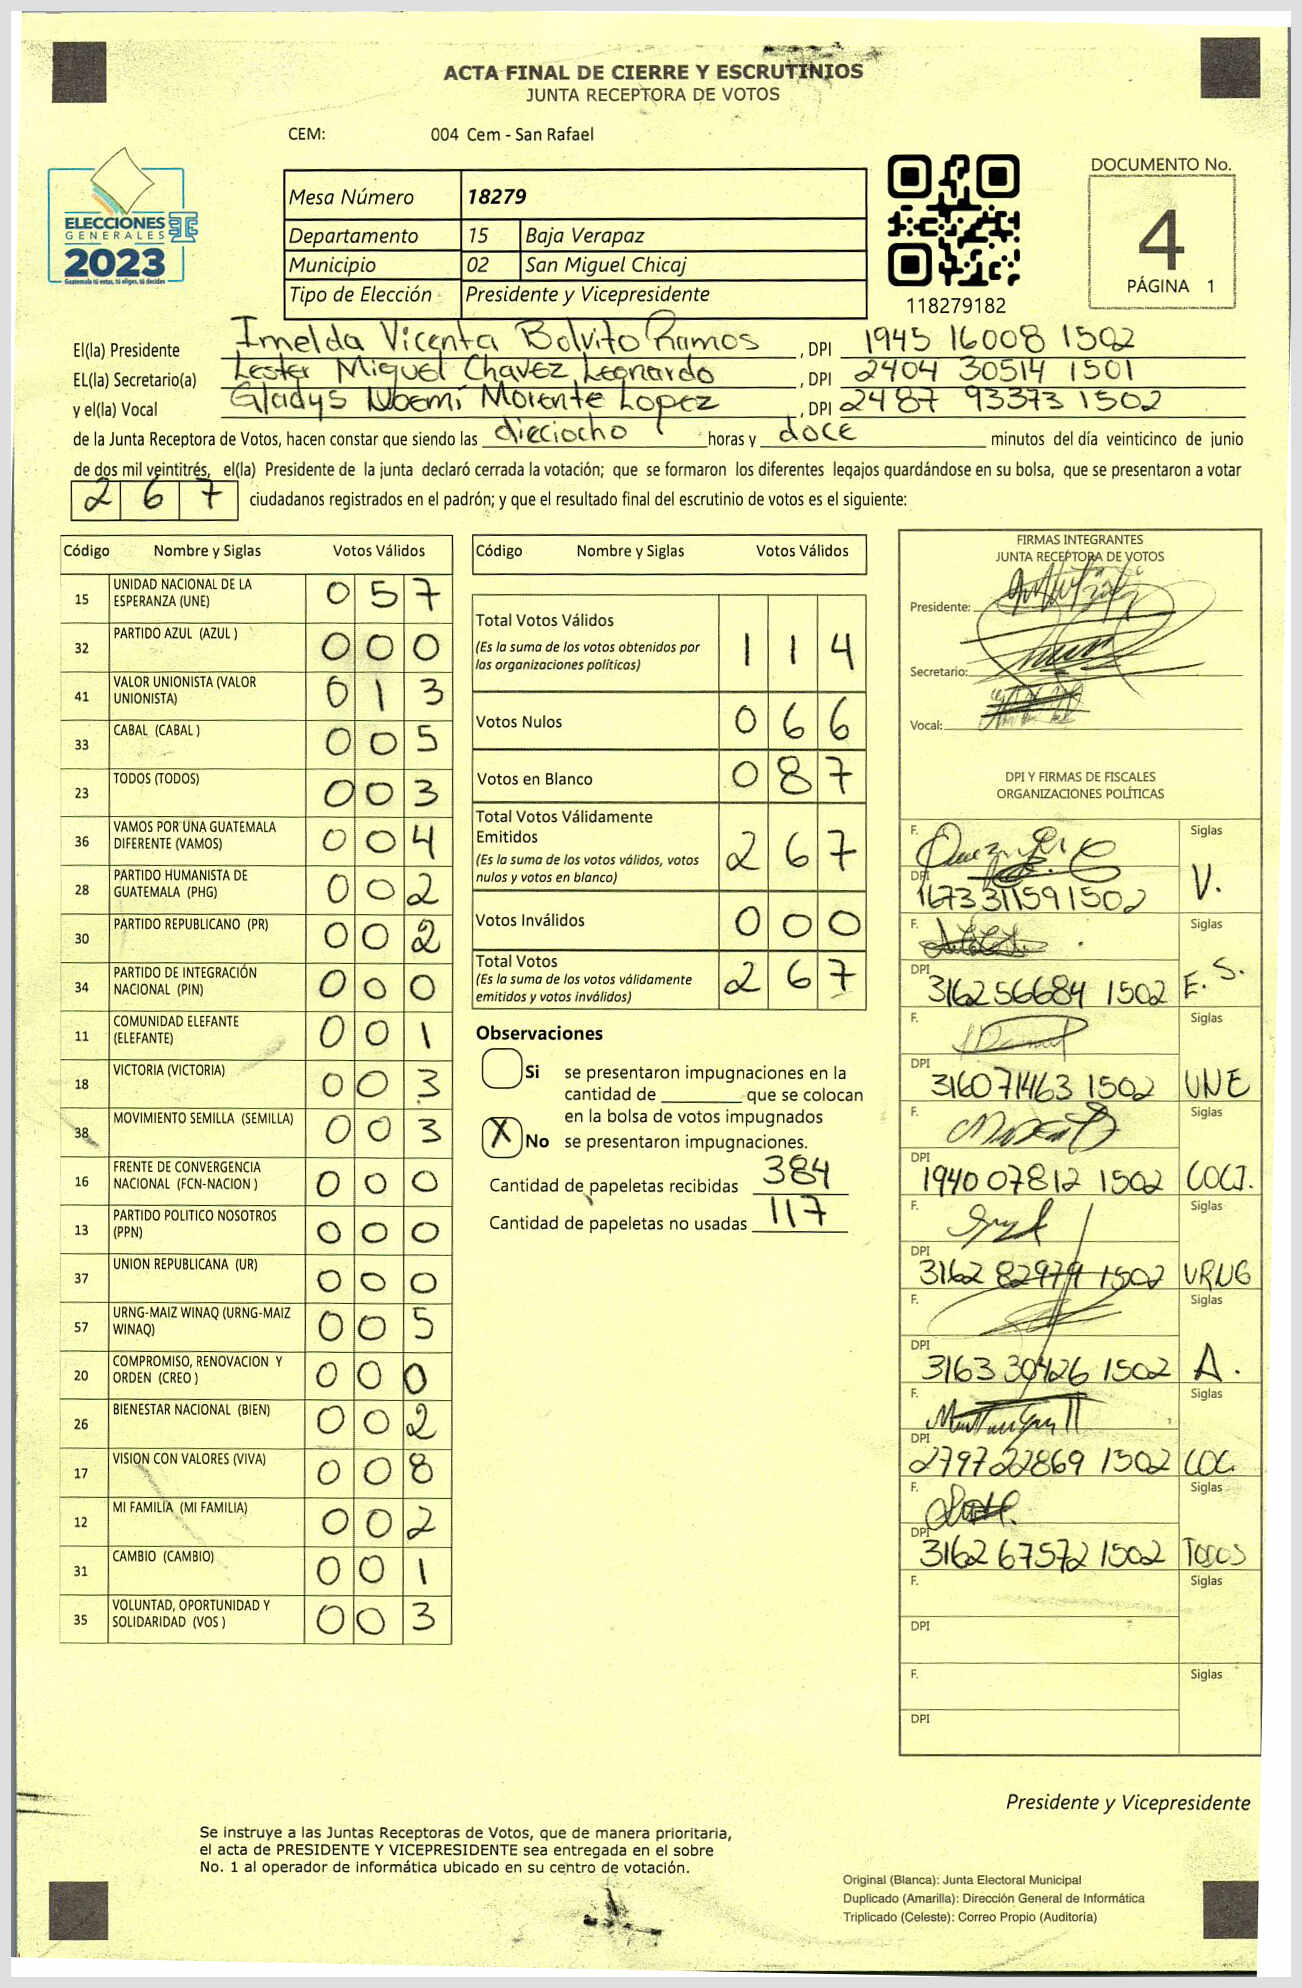 ACTA FINAL DE CIERRE Y ESCRUTINIOS
JUNTA RECEPTORA DE VOTOS
CEM: 004 Cem - San Rafael
ELECCIONES
GENERALES
2023
Guatemala tú votas, tú eliges, tú decides
Mesa Número 18279
Departamento 15 Baja Verapaz
Municipio 02 San Miguel Chicaj
Tipo de Elección Presidente y Vicepresidente
118279182
DOCUMENTO No.
4
PÁGINA 1
El(la) Presidente Imelda Vicenta Bolvito Ramos , DPI 1945 16008 1502
EL(la) Secretario(a) Lester Miguel Chavez Leonardo , DPI 2404 30514 1501
y el(la) Vocal Gladys Noemí Morente Lopez , DPI 2487 93373 1502
de la Junta Receptora de Votos, hacen constar que siendo las dieciocho horas y doce minutos del día veinticinco de junio
de dos mil veintitrés, el(la) Presidente de la junta declaró cerrada la votación; que se formaron los diferentes legajos guardándose en su bolsa, que se presentaron a votar
2 6 7 ciudadanos registrados en el padrón; y que el resultado final del escrutinio de votos es el siguiente:
Código Nombre y Siglas Votos Válidos
15 UNIDAD NACIONAL DE LA ESPERANZA (UNE) 0 5 7
32 PARTIDO AZUL (AZUL ) 0 0 0
41 VALOR UNIONISTA (VALOR UNIONISTA) 0 1 3
33 CABAL (CABAL ) 0 0 5
23 TODOS (TODOS) 0 0 3
36 VAMOS POR UNA GUATEMALA DIFERENTE (VAMOS) 0 0 4
28 PARTIDO HUMANISTA DE GUATEMALA (PHG) 0 0 2
30 PARTIDO REPUBLICANO (PR) 0 0 2
34 PARTIDO DE INTEGRACIÓN NACIONAL (PIN) 0 0 0
11 COMUNIDAD ELEFANTE (ELEFANTE) 0 0 1
18 VICTORIA (VICTORIA) 0 0 3
38 MOVIMIENTO SEMILLA (SEMILLA) 0 0 3
16 FRENTE DE CONVERGENCIA NACIONAL (FCN-NACION ) 0 0 0
13 PARTIDO POLITICO NOSOTROS (PPN) 0 0 0
37 UNION REPUBLICANA (UR) 0 0 0
57 URNG-MAIZ WINAQ (URNG-MAIZ WINAQ) 0 0 5
20 COMPROMISO, RENOVACION Y ORDEN (CREO ) 0 0 0
26 BIENESTAR NACIONAL (BIEN) 0 0 2
17 VISION CON VALORES (VIVA) 0 0 8
12 MI FAMILIA (MI FAMILIA) 0 0 2
31 CAMBIO (CAMBIO) 0 0 1
35 VOLUNTAD, OPORTUNIDAD Y SOLIDARIDAD (VOS ) 0 0 3
Código Nombre y Siglas Votos Válidos
Total Votos Válidos 1 1 4
(Es la suma de los votos obtenidos por
las organizaciones políticas)
Votos Nulos 0 6 6
Votos en Blanco 0 8 7
Total Votos Válidamente
Emitidos 2 6 7
(Es la suma de los votos válidos, votos
nulos y votos en blanco)
Votos Inválidos 0 0 0
Total Votos 2 6 7
(Es la suma de los votos válidamente
emitidos y votos inválidos)
Observaciones
Si se presentaron impugnaciones en la
cantidad de ________ que se colocan
en la bolsa de votos impugnados
X No se presentaron impugnaciones.
Cantidad de papeletas recibidas 384
Cantidad de papeletas no usadas 117
FIRMAS INTEGRANTES
JUNTA RECEPTORA DE VOTOS
Presidente:
Secretario:
Vocal:
DPI Y FIRMAS DE FISCALES
ORGANIZACIONES POLÍTICAS
F. Siglas
DPI 1673 311591502 V.
F. Siglas
DPI 3162 56684 1502 E. S.
F. Siglas
DPI 316071463 1502 UNE
F. Siglas
DPI 1940 07812 1502
F. Siglas
DPI 3162 82979 1502 URNG
F. Siglas
DPI 3163 30426 1502 A.
F. Siglas
DPI 2797 22869 1502
F. Siglas
DPI 3162 67572 1502 TODOS
F. Siglas
DPI
F. Siglas
DPI
Presidente y Vicepresidente
Se instruye a las Juntas Receptoras de Votos, que de manera prioritaria,
el acta de PRESIDENTE Y VICEPRESIDENTE sea entregada en el sobre
No. 1 al operador de informática ubicado en su centro de votación.
Original (Blanca): Junta Electoral Municipal
Duplicado (Amarilla): Dirección General de Informática
Triplicado (Celeste): Correo Propio (Auditoría)